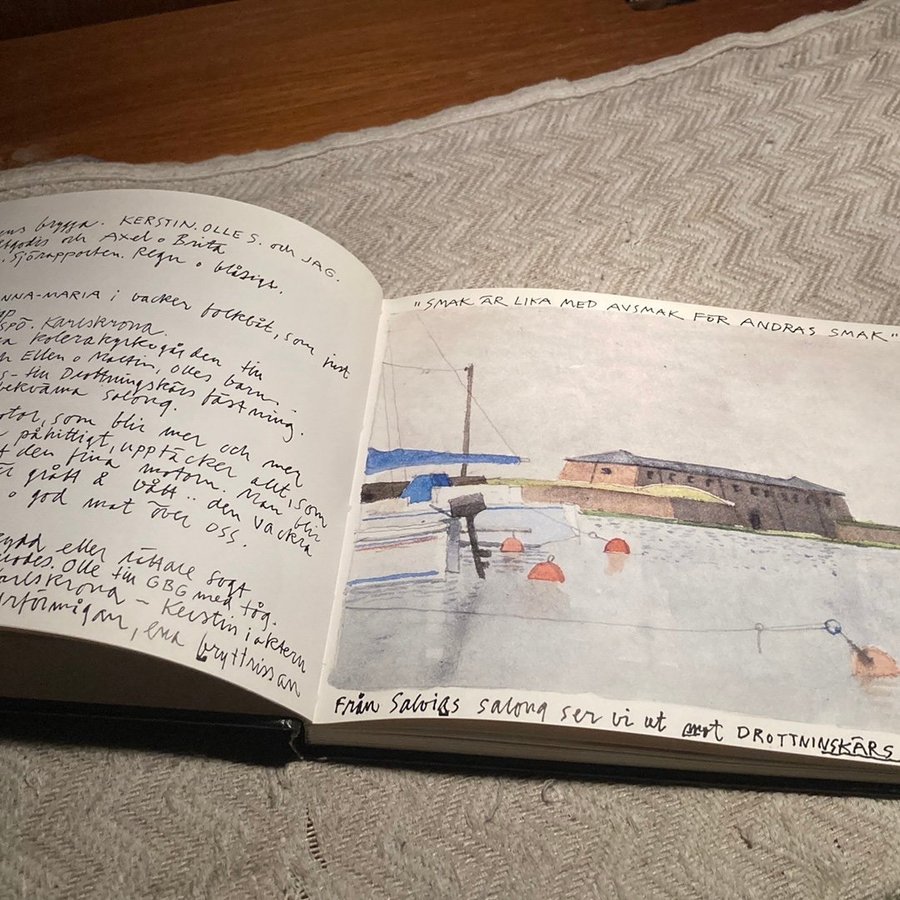 ens brygga. KERSTIN. OLLE S. och JAG.
och Axel o Brita
Sjörapporten. Regn o blåsigt.
NNA-MARIA i vacker folkbåt, som just
SPÖ. Karlskrona.
a kolerakyrkogården till
Ellen o Mattin, Olles barn.
S- till Drottningskärs fästning.
bekväma salong.
otor, som blir mer och mer
påhittigt, upptäcker allt, som
den fina motorn. Man blir
grått & vått .. den vackra
o god mat över oss.
eller rättare sagt
Olle till GBG med tåg.
arlskrona - Kerstin i aktern
, ena bryttrissan
"SMAK ÄR LIKA MED AVSMAK FÖR ANDRAS SMAK"
Från Salvias salong ser vi ut mot DROTTNINSKÄRS